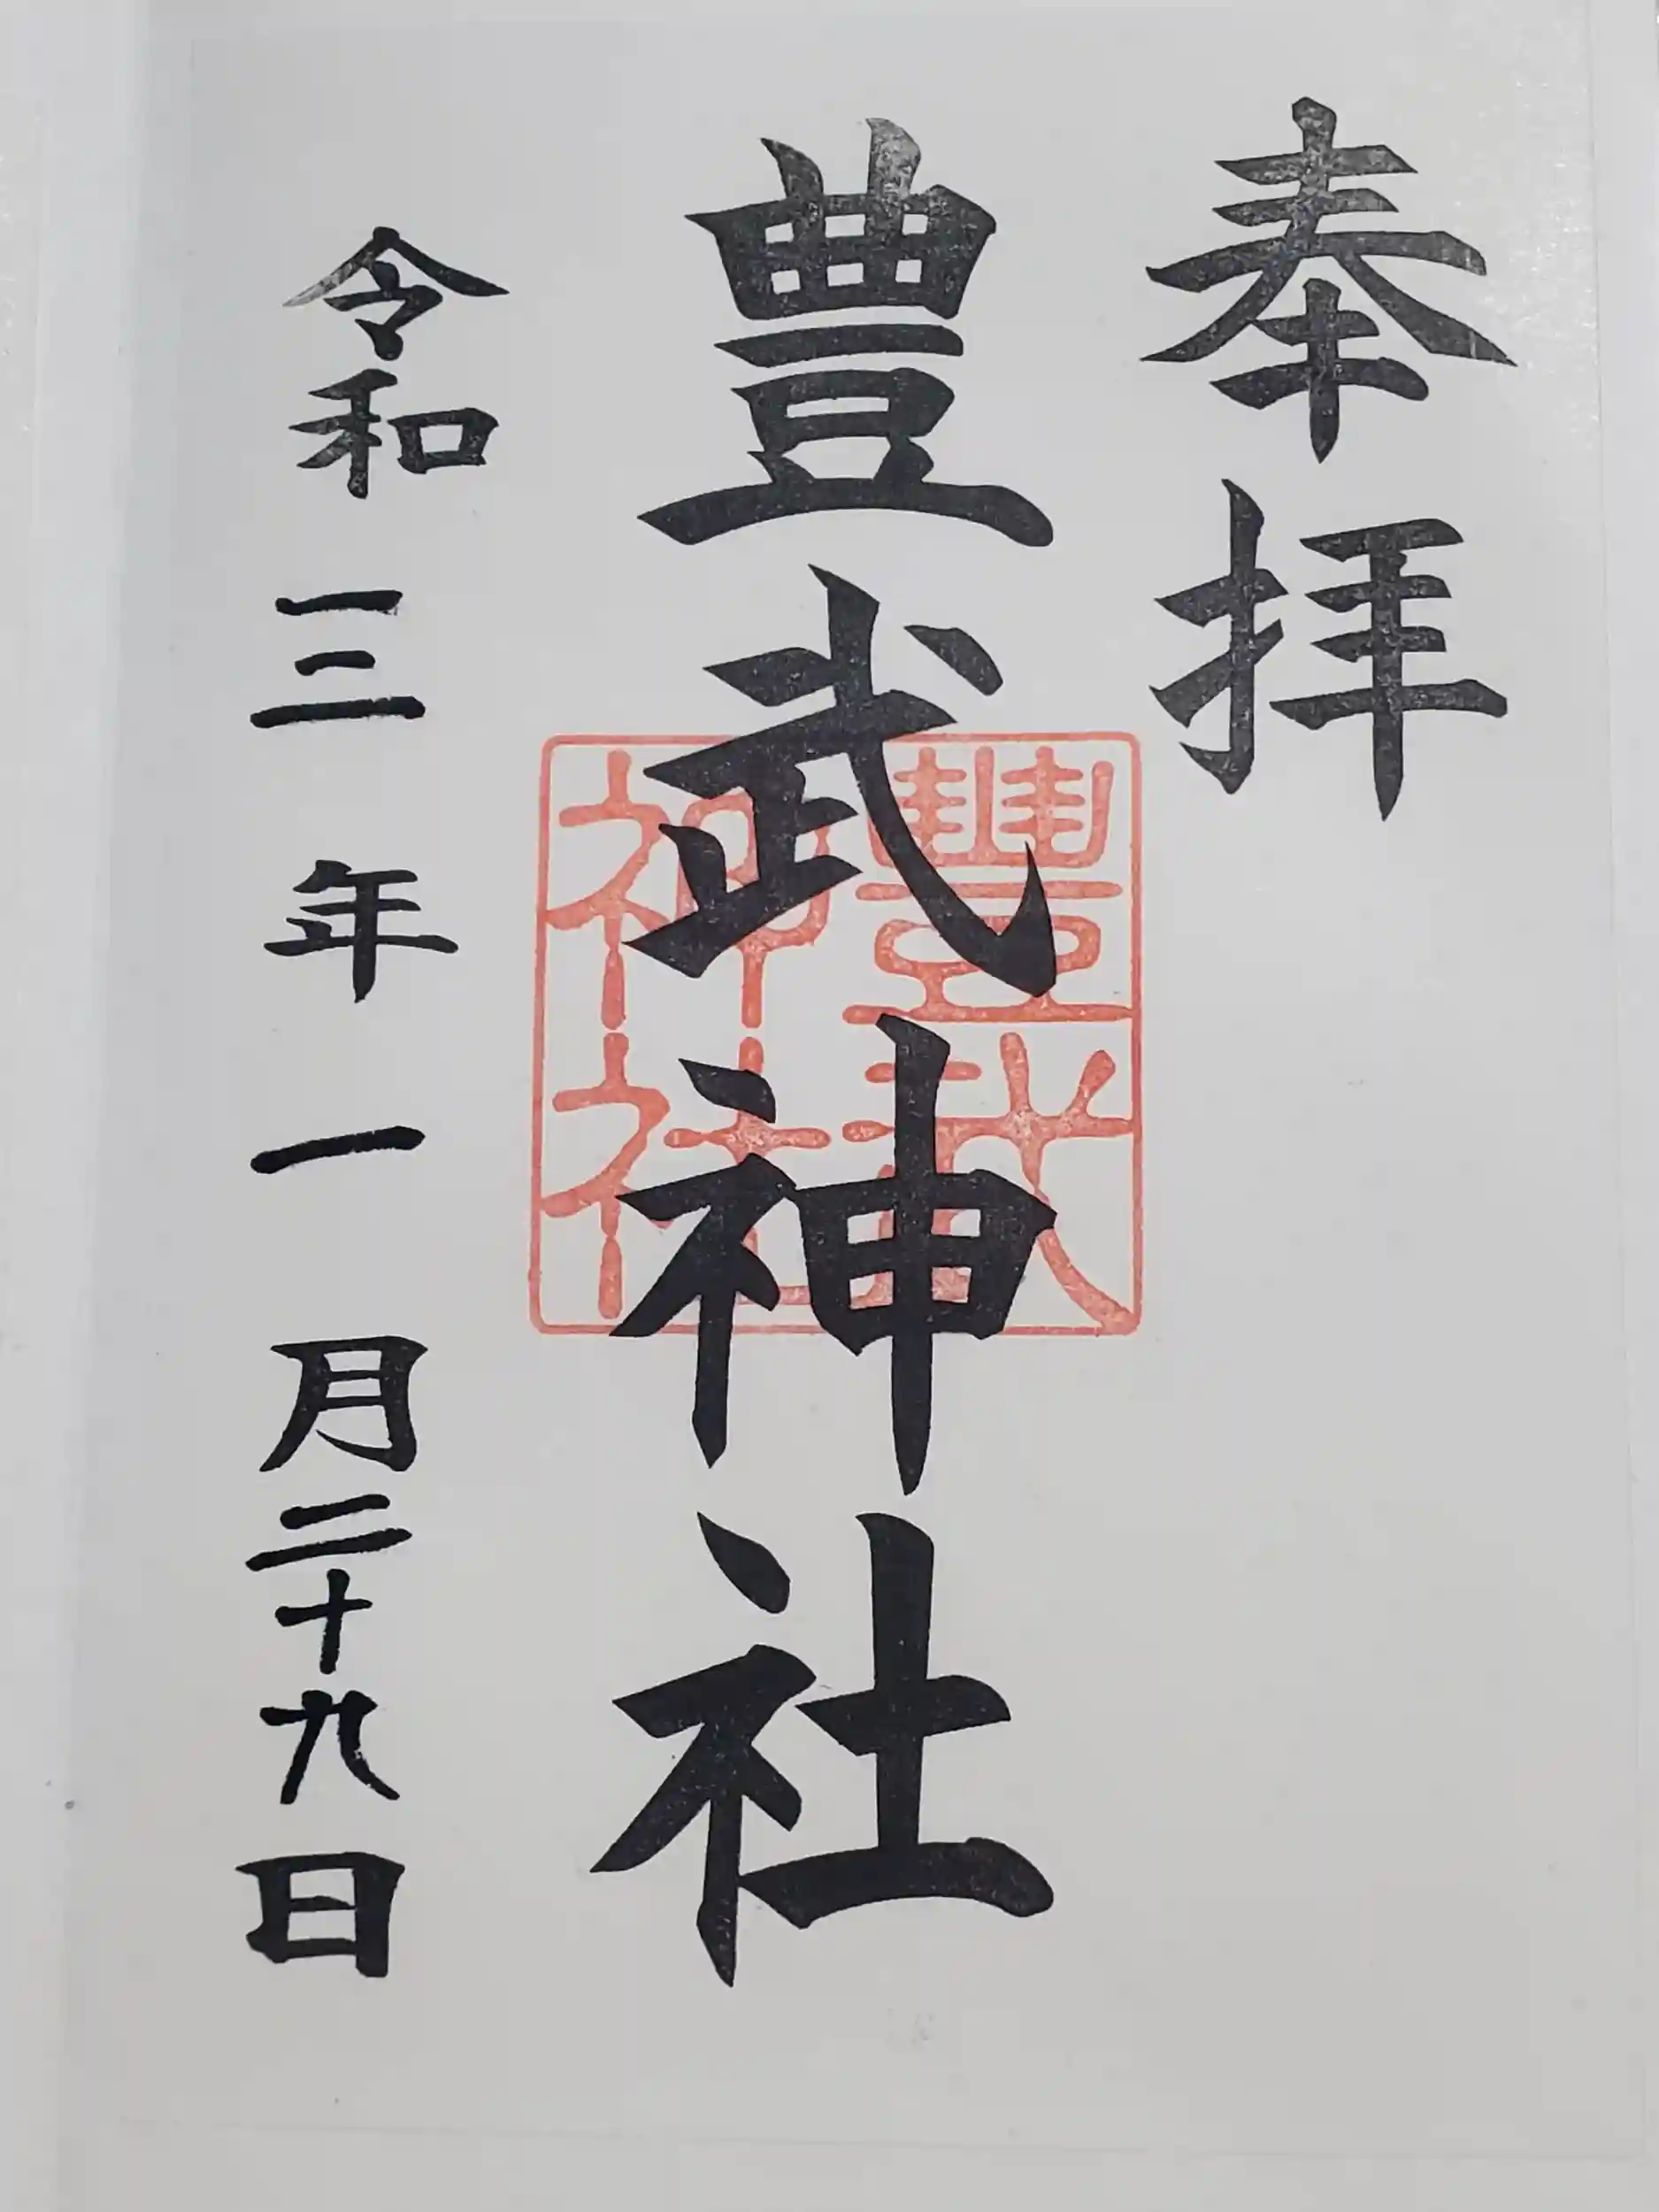 奉拝
豊武神社
豐武
神社
令和三年一月二十九日